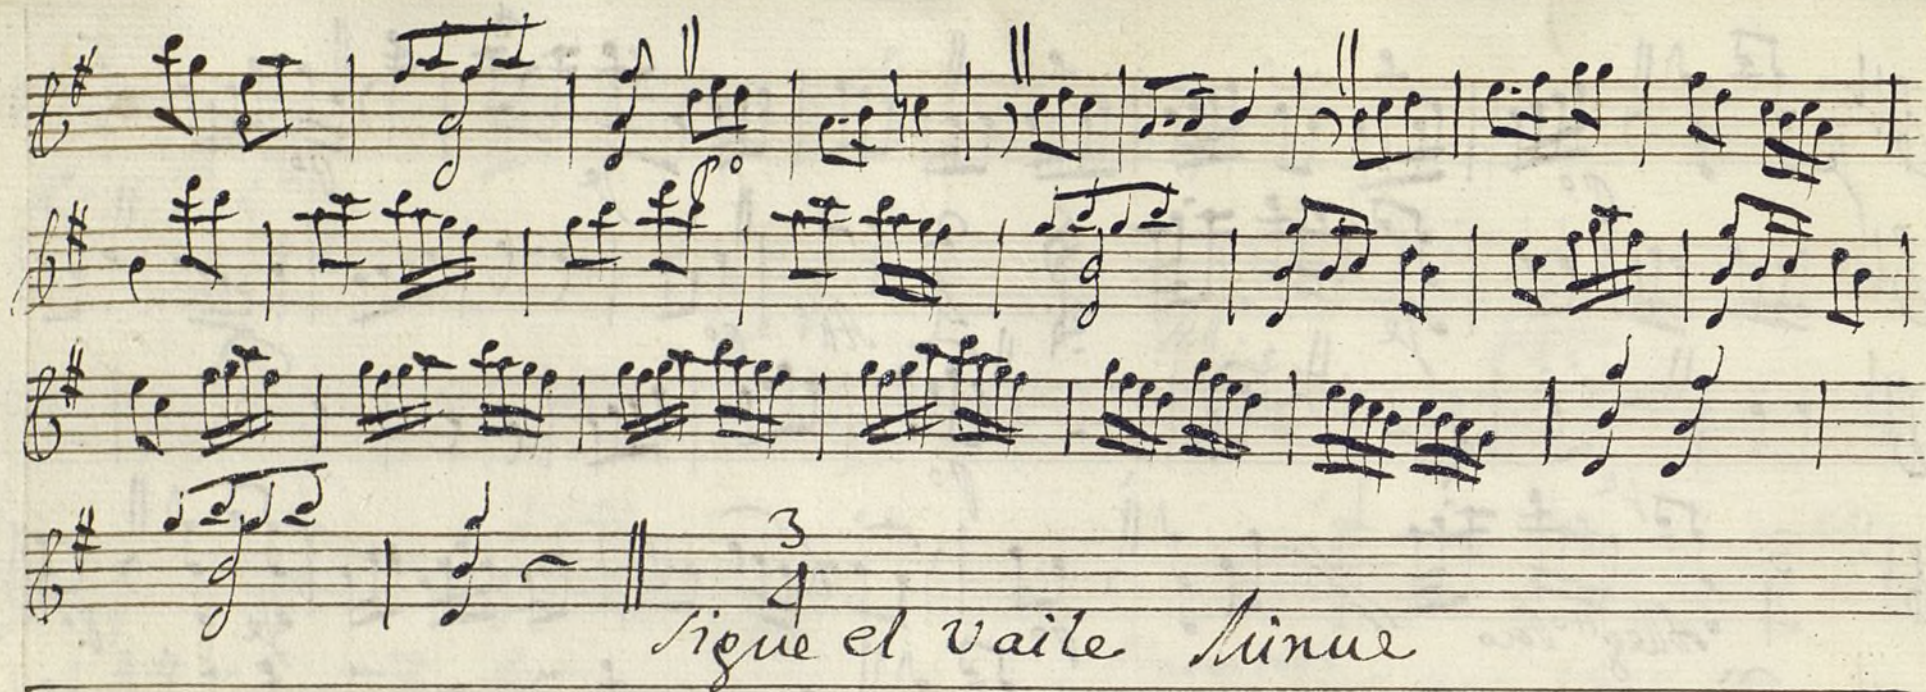 po
3
4
Sigue el vaile Minue